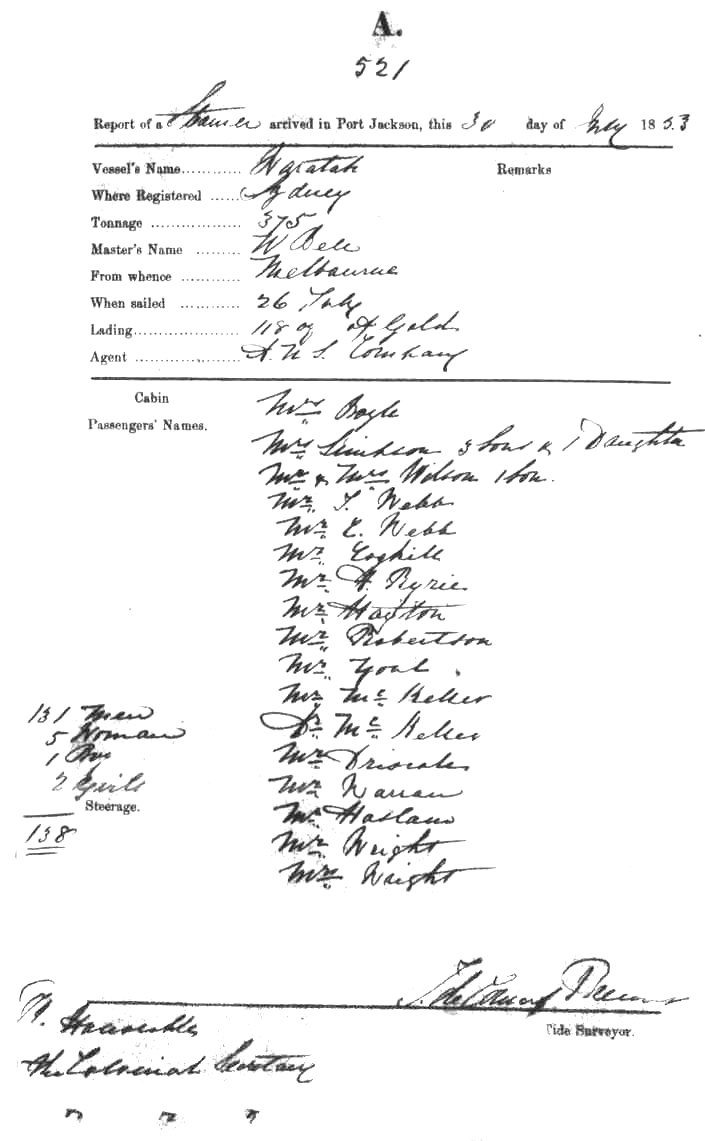 A.
521
Report of a Steamer arrived in Port Jackson, this 30 day of July 1853
Vessel's Name............ Waratah Remarks
Where Registered ...... Sydney
Tonnage .................. 375
Master's Name ......... W Bell
From whence ............ Melbourne
When sailed ............ 26 July
Lading..................... 118 oz of Gold
Agent ..................... A. N S. Company
Cabin
Passengers' Names.
Mrs Boyle
Mrs Simpson 3 Sons & 1 Daughter
Mr & Mrs Wilson 1 Son.
Mr T. Webb
Mr E. Webb
Mr Coghill
Mr A Ryrie
Mr Hayton
Mr Robertson
Mr Youl
Mr Mc Keller
Dr Mc Keller
Mr
Mr Warran
Mr Haslam
Mr Wright
Mrs Wright
131 Men
5 Woman
1 Boy
2 Girls
Steerage.
138
Tide Surveyor.
Honorable
the Colonial Secretary
" " "